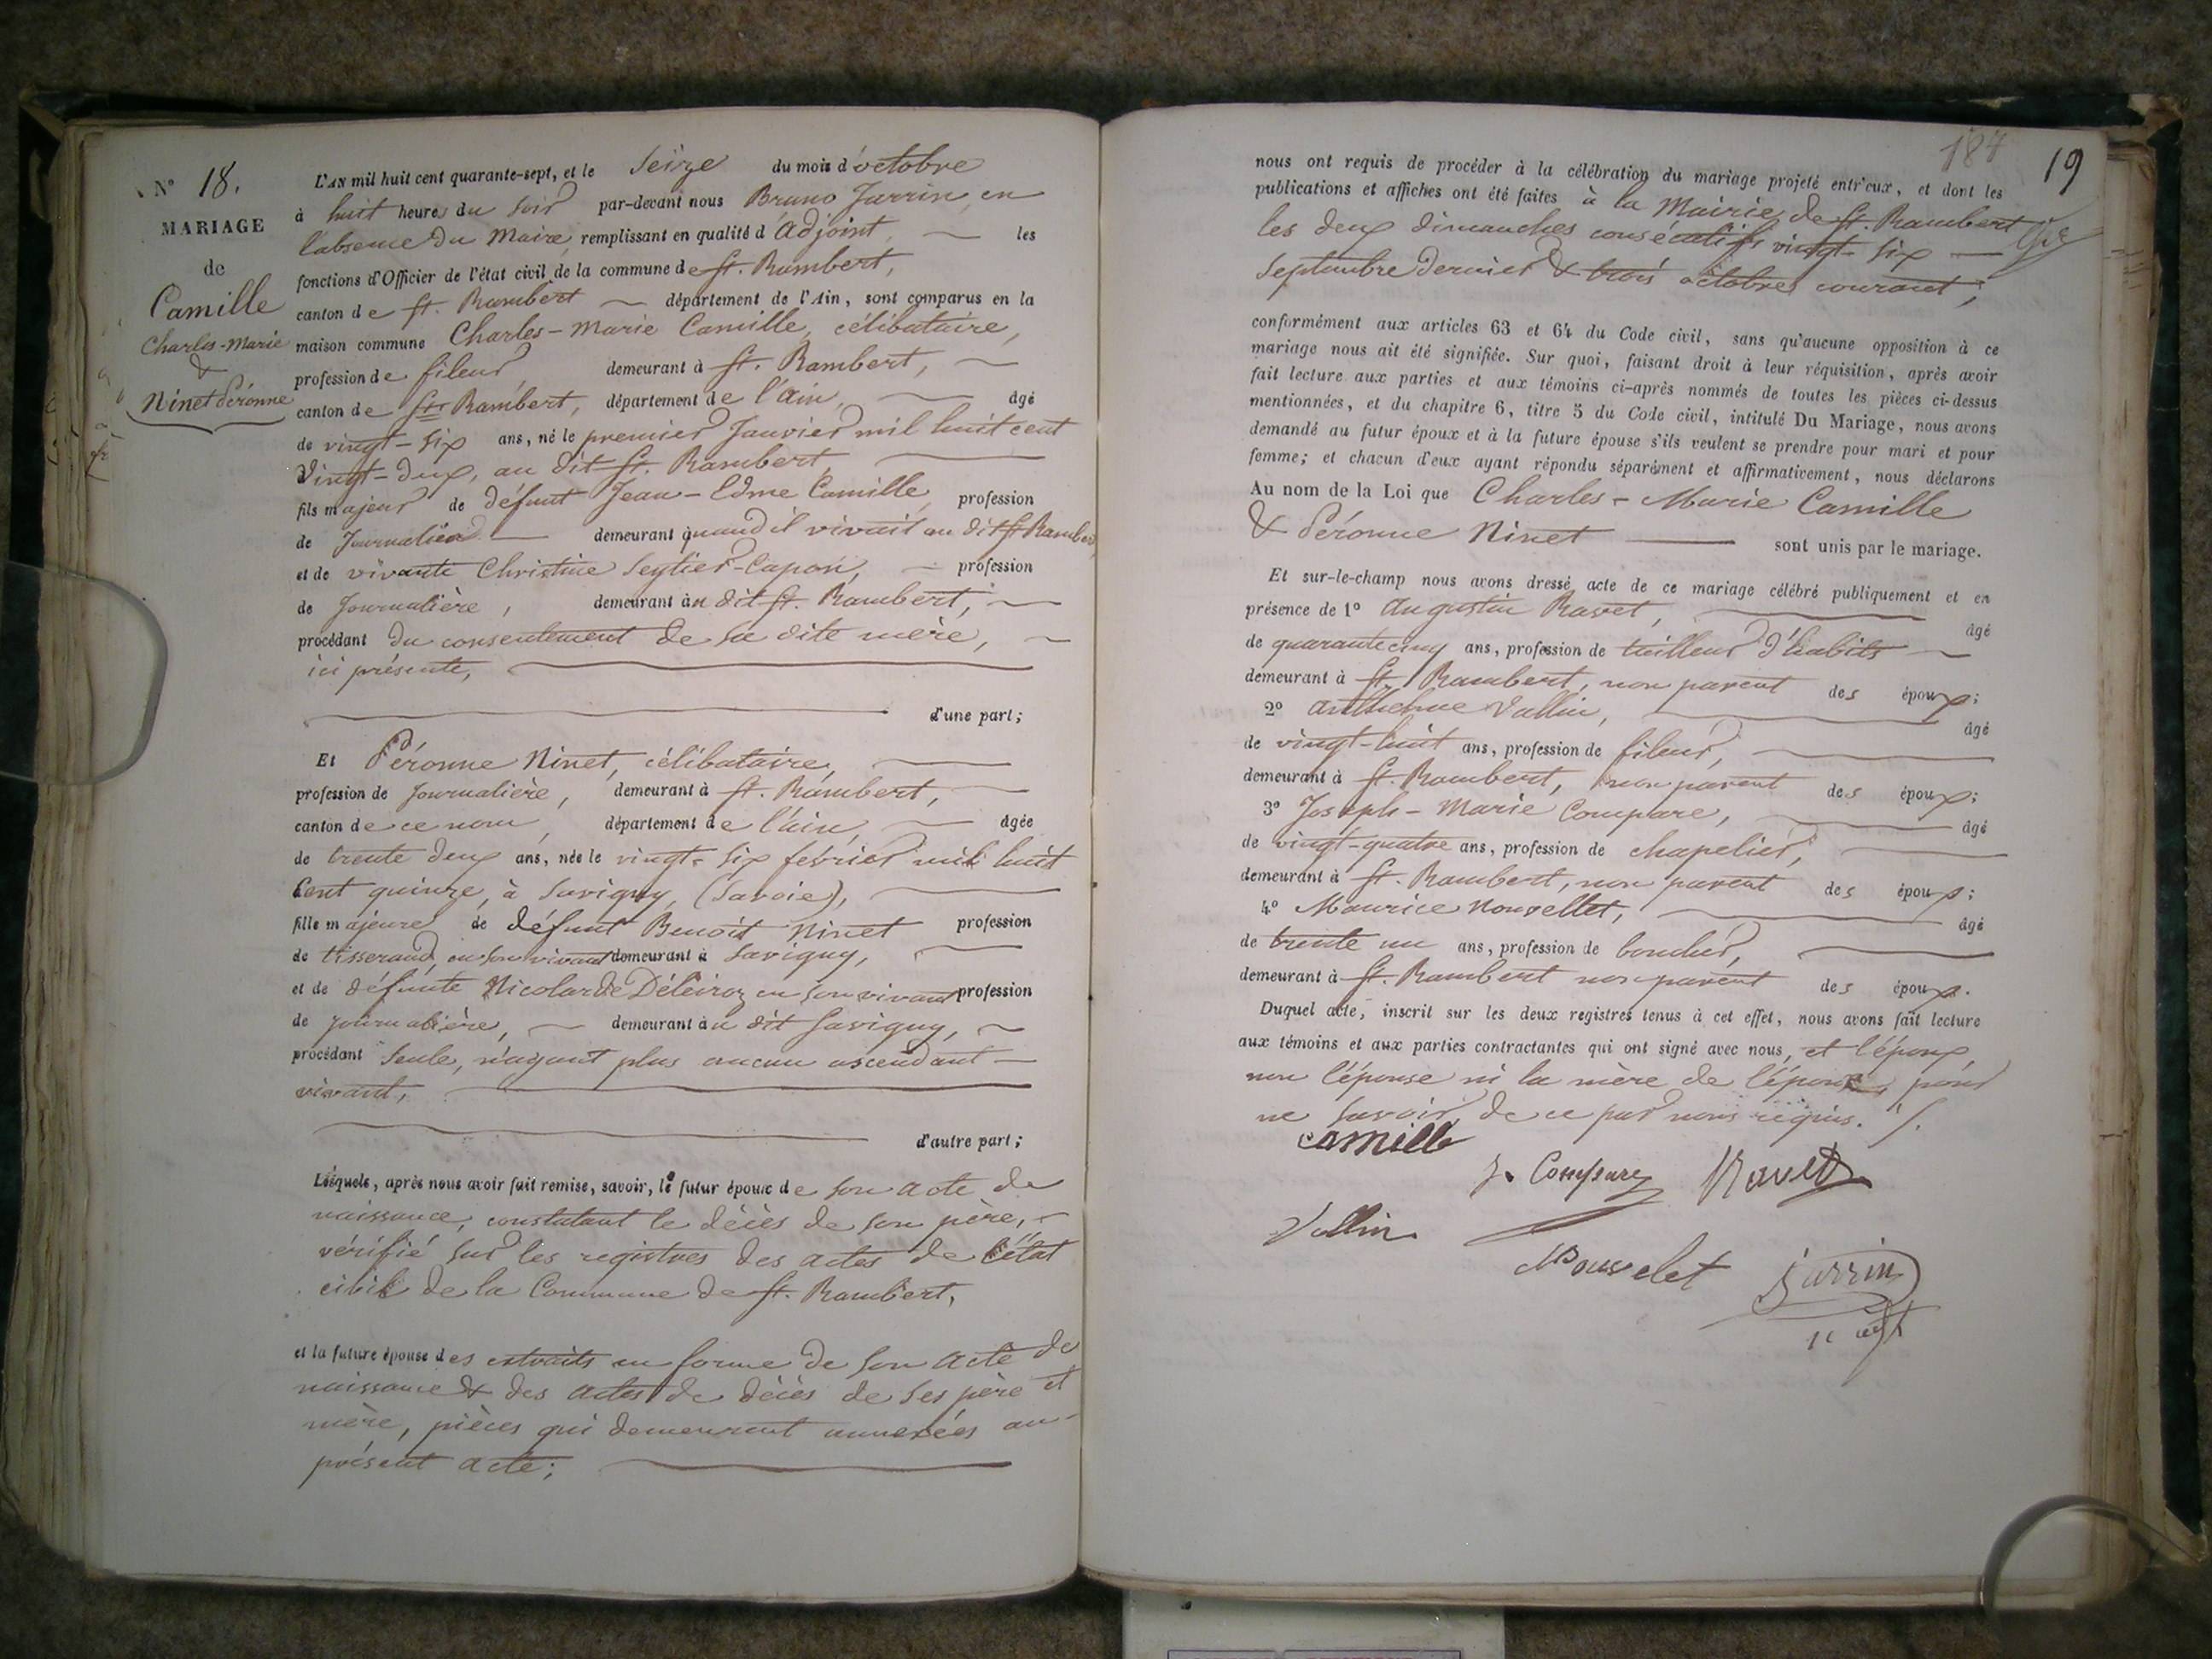 N° 18.
MARIAGE
de
Camille
Charles-Marie
&
Ninet Péronne
L'AN mil huit cent quarante-sept, et le Seize du mois d'octobre
à huit heures du soir par-devant nous Bruno Jarrin, en
l'absence du Maire, remplissant en qualité d'adjoint, les
fonctions d'Officier de l'état civil de la commune de St. Rambert,
canton de St. Rambert département de l'Ain, sont comparus en la
maison commune Charles-Marie Camille, célibataire,
profession de fileur demeurant à St. Rambert,
canton de St. Rambert, département de l'ain, âgé
de vingt-six ans, né le premier Janvier mil huit cent
vingt-deux, au dit St. Rambert,
fils majeur de défunt Jean-Edme Camille, profession
de Journalier demeurant quand il vivait au dit St Rambert
et de vivante Christine Seytier-Capon, profession
de Journalière, demeurant au dit St. Rambert,
procédant du consentement de sa dite mère,
ici présente,
d'une part;
Et Péronne Ninet, célibataire,
profession de Journalière, demeurant à St. Rambert,
canton de ce nom, département de l'ain, âgée
de trente deux ans, née le vingt-six février mil huit
cent quinze, à Savigny, (Savoie),
fille majeure de défunt Benoit Ninet profession
de tisserand, en son vivant demeurant à Savigny,
et de défunte Nicolarde en son vivant profession
de journalière, demeurant au dit Savigny,
procédant seule, n'ayant plus aucun ascendant
vivant,
d'autre part;
Lesquels, après nous avoir fait remise, savoir, le futur époux de son acte de
naissance, constatant le décès de son père,
vérifié sur les registres des actes de l'état
civil de la Commune de St. Rambert,
et la future épouse des extraits en forme de son acte de
naissance & des actes de décès de ses père et
mère, pièces qui demeurent annexées au
présent acte;
187
19
nous ont requis de procéder à la célébration du mariage projeté entr'eux, et dont les
publications et affiches ont été faites à la Mairie de St. Rambert
les deux dimanches consécutifs vingt-six
septembre dernier & trois octobre courant;
conformément aux articles 63 et 64 du Code civil, sans qu'aucune opposition à ce
mariage nous ait été signifiée. Sur quoi, faisant droit à leur réquisition, après avoir
fait lecture aux parties et aux témoins ci-après nommés de toutes les pièces ci-dessus
mentionnées, et du chapitre 6, titre 5 du Code civil, intitulé Du Mariage, nous avons
demandé au futur époux et à la future épouse s'ils veulent se prendre pour mari et pour
femme; et chacun d'eux ayant répondu séparément et affirmativement, nous déclarons
Au nom de la Loi que Charles-Marie Camille
& Péronne Ninet sont unis par le mariage.
Et sur-le-champ nous avons dressé acte de ce mariage célébré publiquement et en
présence de 1° Augustin Ravet, âgé
de quarante cinq ans, profession de tailleur d'habits
demeurant à St. Rambert, non parent des époux;
2° Anthelme Vallin, âgé
de vingt-huit ans, profession de fileur,
demeurant à St. Rambert, non parent des époux;
3° Joseph-Marie Compare, âgé
de vingt-quatre ans, profession de chapelier,
demeurant à St. Rambert, non parent des époux;
4° Maurice Nouvellet, âgé
de trente un ans, profession de boucher,
demeurant à St. Rambert non parent des époux.
Duquel acte, inscrit sur les deux registres tenus à cet effet, nous avons fait lecture
aux témoins et aux parties contractantes qui ont signé avec nous, et l'époux,
non l'épouse ni la mère de l'époux, pour
ne savoir, de ce par nous requis.
camille
J. Compare Ravet
Vallin
Nouvelet Jarrin